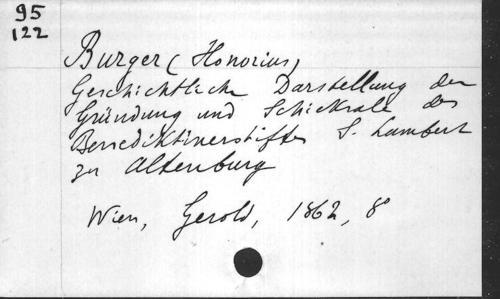 95
122
Burger (Honorius)
Geschichtliche Darstellung der
Gründung und Schicksale des
Benediktinerstiftes S. Lambert
zu Altenburg
Wien, Gerold, 1862, 8°